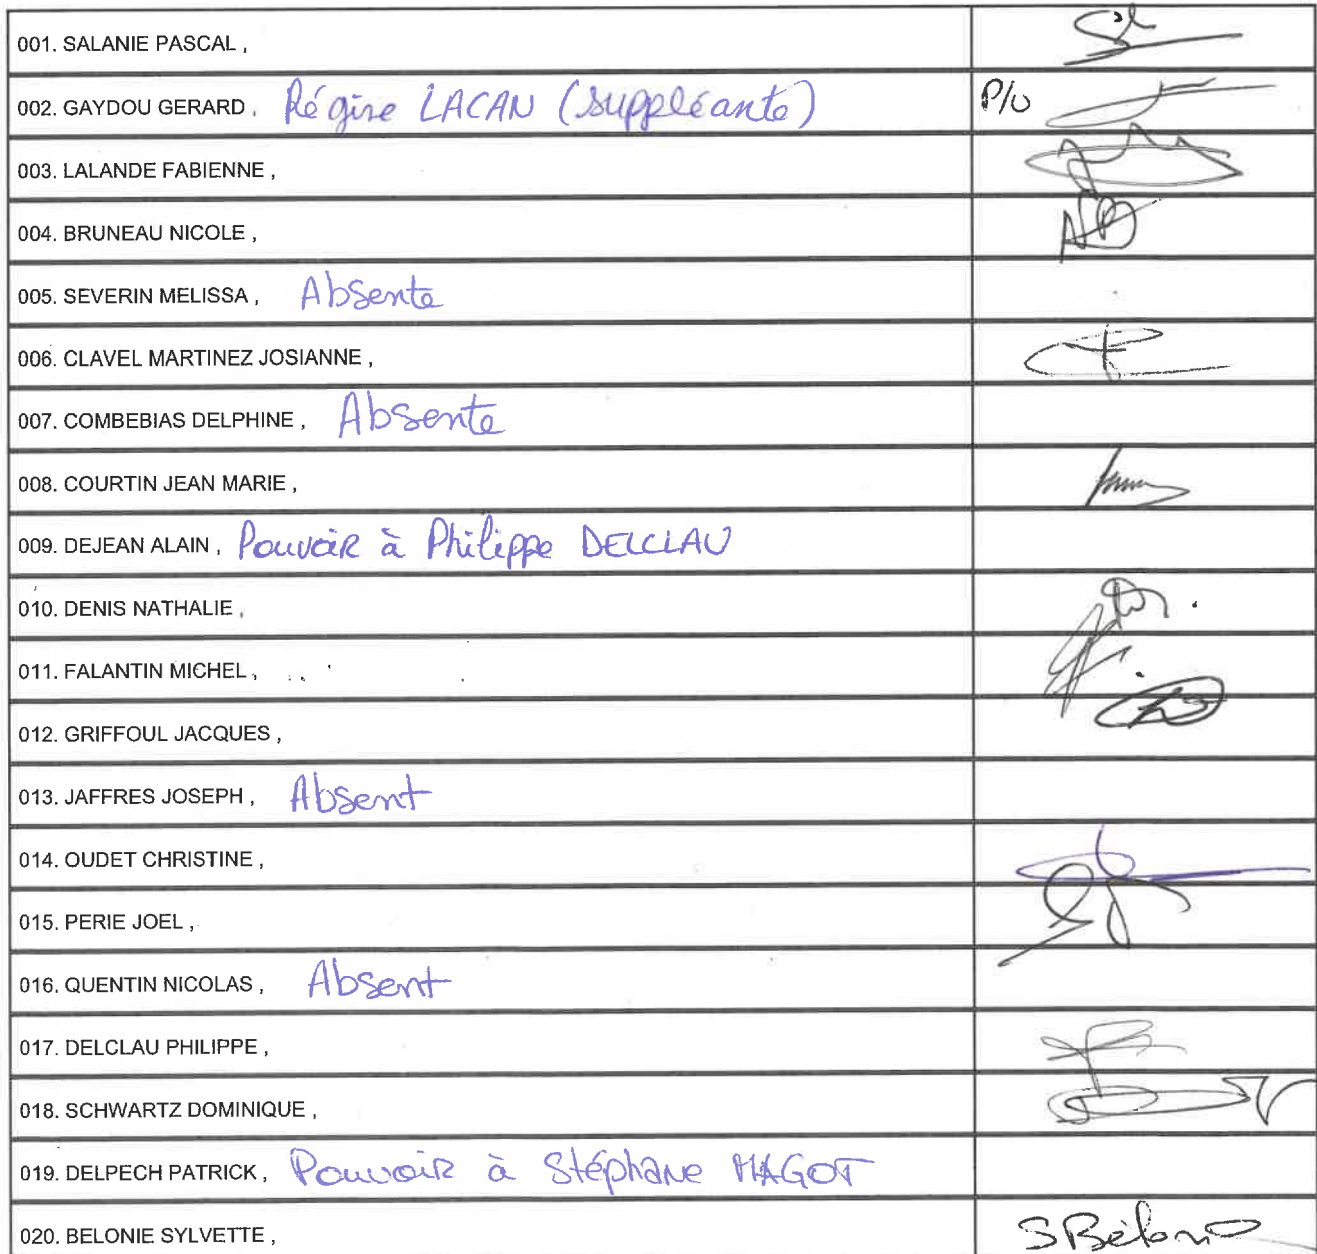 001. SALANIE PASCAL ,
002. GAYDOU GERARD , Régine LACAN (suppléante) P/o
003. LALANDE FABIENNE ,
004. BRUNEAU NICOLE ,
005. SEVERIN MELISSA , Absente
006. CLAVEL MARTINEZ JOSIANNE ,
007. COMBEBIAS DELPHINE , Absente
008. COURTIN JEAN MARIE ,
009. DEJEAN ALAIN , Pouvoir à Philippe DELCLAU
010. DENIS NATHALIE ,
011. FALANTIN MICHEL ,
012. GRIFFOUL JACQUES ,
013. JAFFRES JOSEPH , Absent
014. OUDET CHRISTINE ,
015. PERIE JOEL ,
016. QUENTIN NICOLAS , Absent
017. DELCLAU PHILIPPE ,
018. SCHWARTZ DOMINIQUE ,
019. DELPECH PATRICK , Pouvoir à Stéphane MAGOT
020. BELONIE SYLVETTE ,